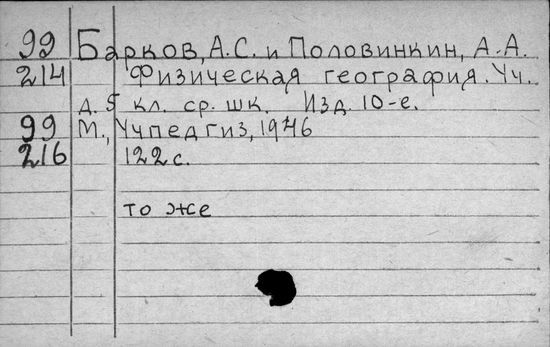 99 Барков, А.С. и Половинкин, А.А.
214 Физическая география. Уч.
д. 5 кл. ср. шк. Изд. 10-е.
99 М., Учпедгиз, 1946
216 122 с.
то же